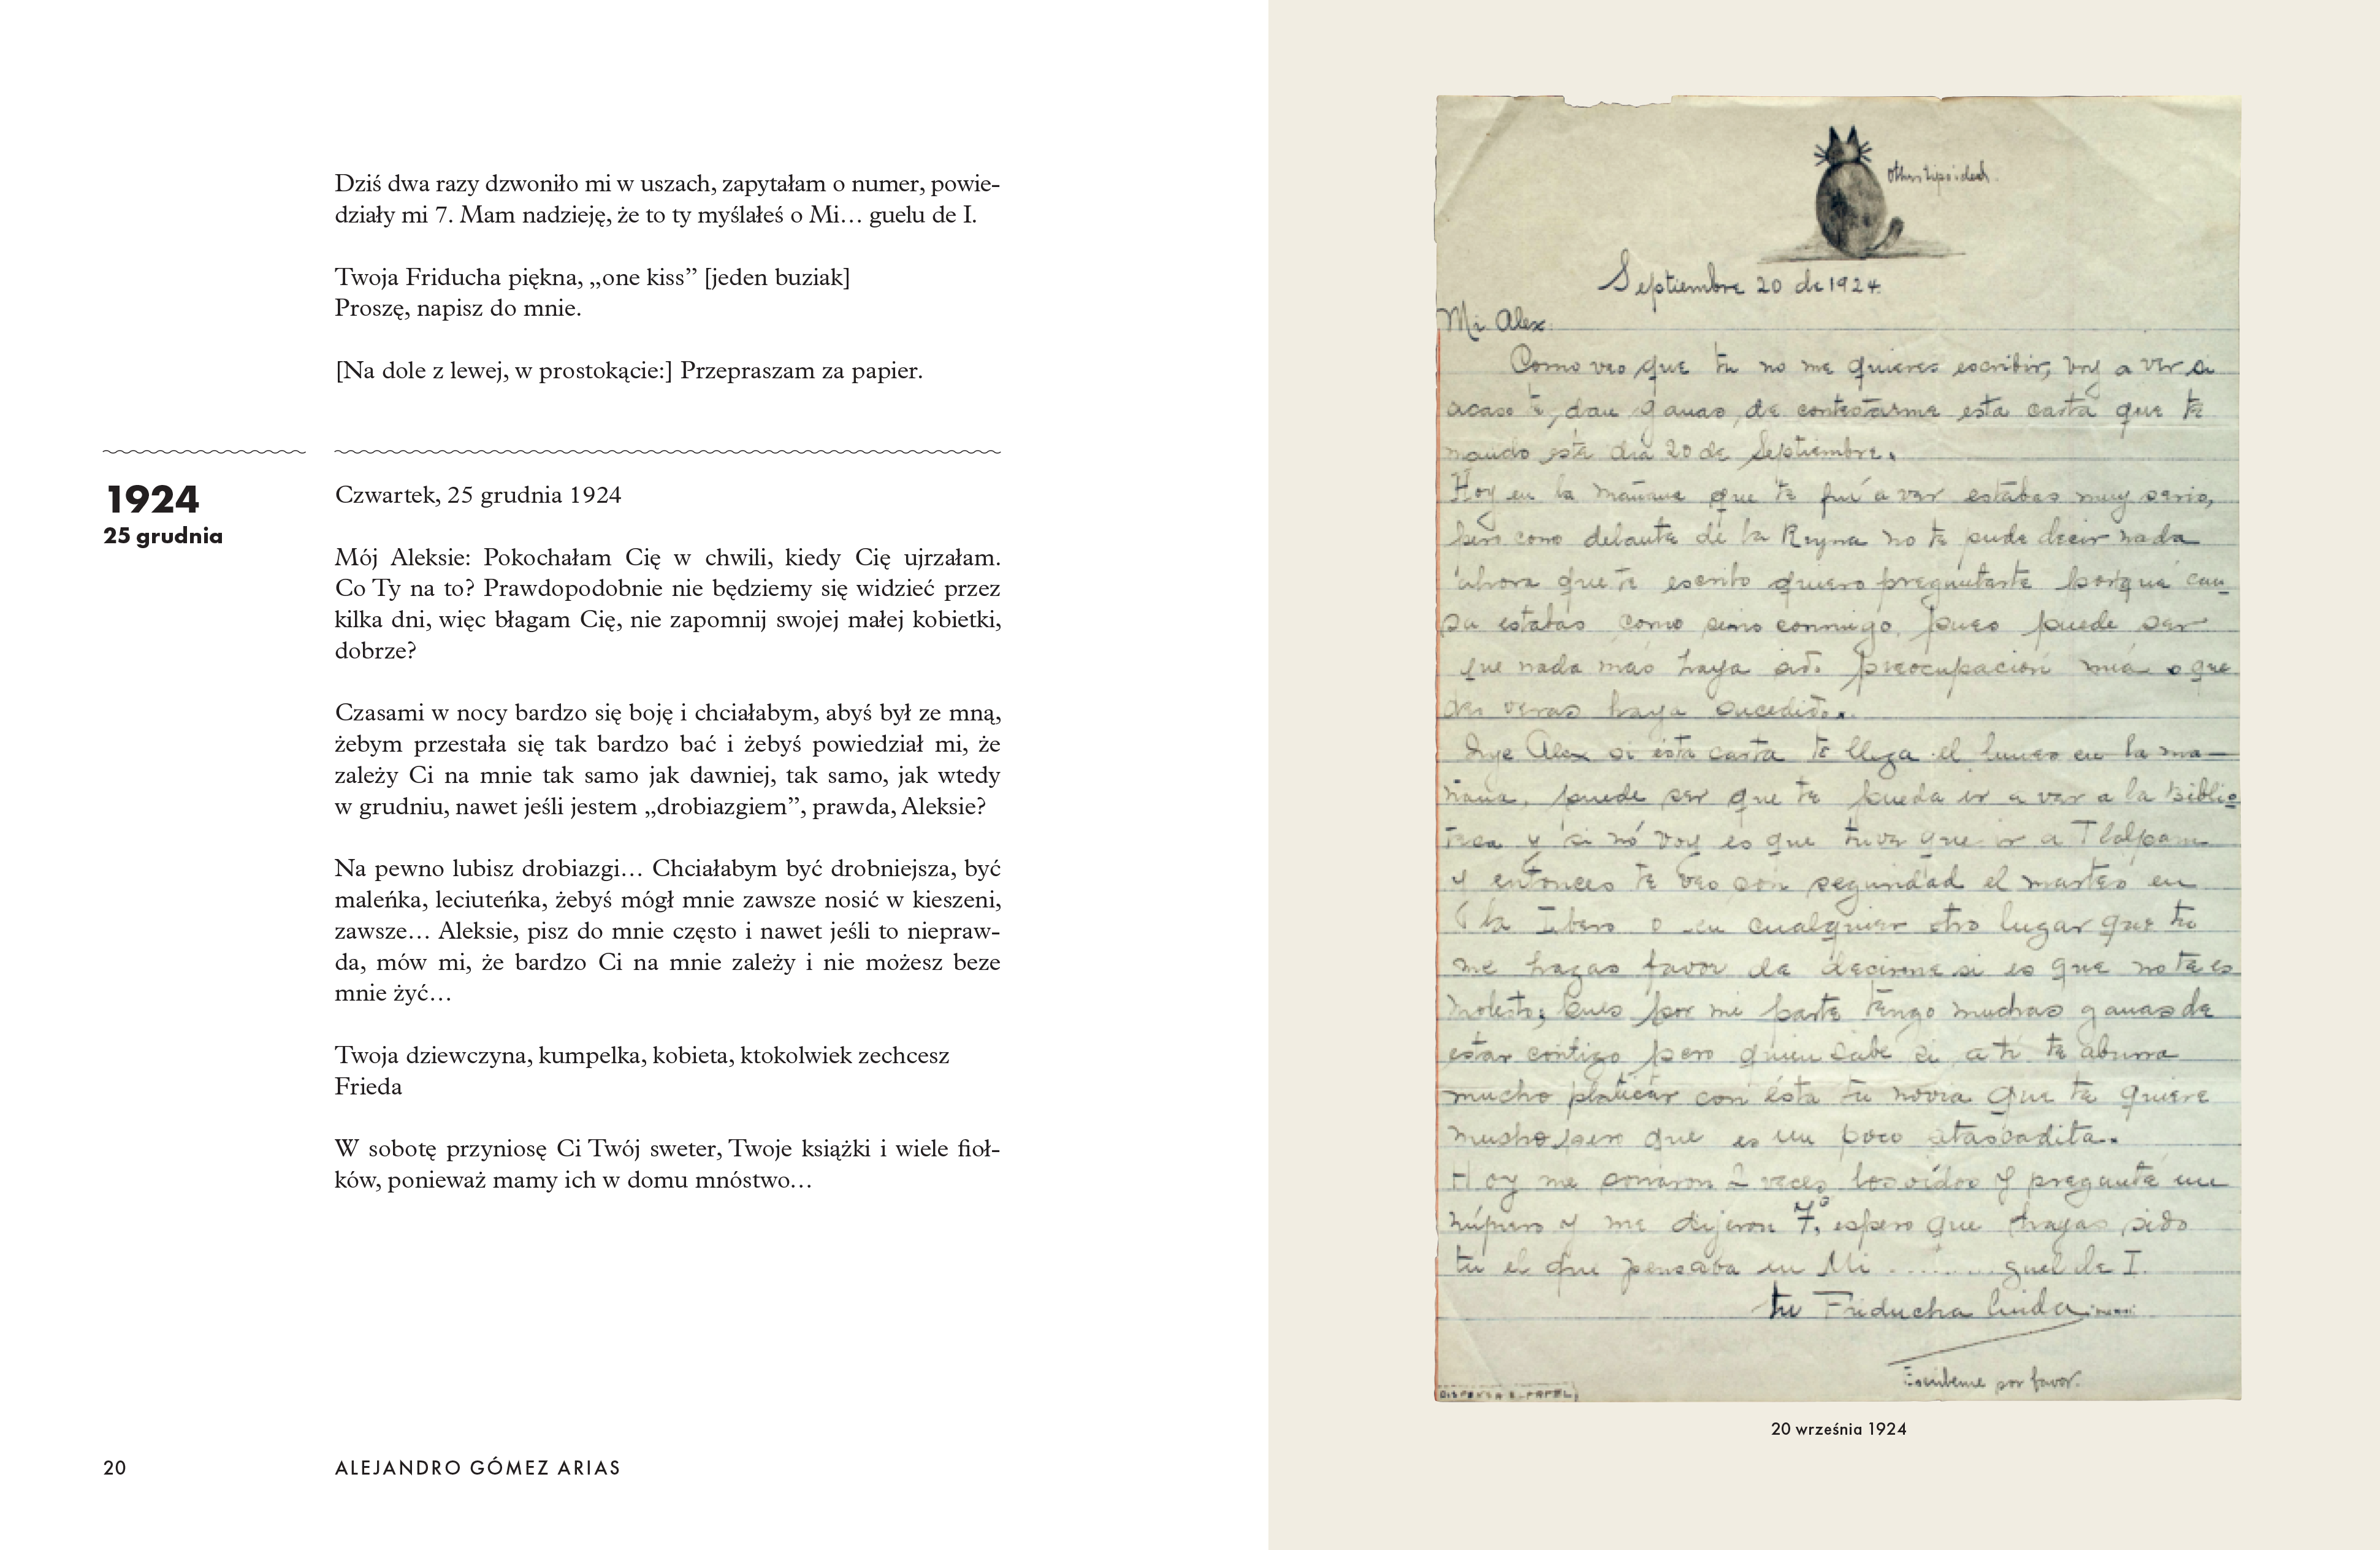 Dziś dwa razy dzwoniło mi w uszach, zapytałam o numer, powie-
działy mi 7. Mam nadzieję, że to ty myślałeś o Mi… guelu de I.
Twoja Friducha piękna, „one kiss” [jeden buziak]
Proszę, napisz do mnie.
[Na dole z lewej, w prostokącie:] Przepraszam za papier.
1924
25 grudnia
Czwartek, 25 grudnia 1924
Mój Aleksie: Pokochałam Cię w chwili, kiedy Cię ujrzałam.
Co Ty na to? Prawdopodobnie nie będziemy się widzieć przez
kilka dni, więc błagam Cię, nie zapomnij swojej małej kobietki,
dobrze?
Czasami w nocy bardzo się boję i chciałabym, abyś był ze mną,
żebym przestała się tak bardzo bać i żebyś powiedział mi, że
zależy Ci na mnie tak samo jak dawniej, tak samo, jak wtedy
w grudniu, nawet jeśli jestem „drobiazgiem”, prawda, Aleksie?
Na pewno lubisz drobiazgi… Chciałabym być drobniejsza, być
maleńka, leciuteńka, żebyś mógł mnie zawsze nosić w kieszeni,
zawsze… Aleksie, pisz do mnie często i nawet jeśli to niepraw-
da, mów mi, że bardzo Ci na mnie zależy i nie możesz beze
mnie żyć…
Twoja dziewczyna, kumpelka, kobieta, ktokolwiek zechcesz
Frieda
W sobotę przyniosę Ci Twój sweter, Twoje książki i wiele fioł-
ków, ponieważ mamy ich w domu mnóstwo…
20
ALEJANDRO GÓMEZ ARIAS
Septiembre 20 de 1924.
Mi Alex.
Como veo que tu no me quieres escribir, voy a ver si
acaso te dan ganas de contestarme esta carta que te
mando este dia 20 de Septiembre.
Hoy en la mañana que te fuí a ver estabas muy serio,
pero como delante de la Reyna no te pude decir nada
ahora que te escribo quiero preguntarte porqué cau
sa estabas como serio conmigo, pues puede ser
que nada más haya sido preocupación mía o que
de veras haya sucedido..
Oye Alex si esta carta te llega el lunes en la ma—
ñana, puede ser que te pueda ir a ver a la Biblio
teca y si nó voy es que tuve que ir a Tlalpam
y entonces te veo con seguridad el martes en
la Ibero o en cualquier otro lugar que tu
me hagas favor de decirme si es que no te es
molesto; pues por mi parte tengo muchas ganas de
estar contigo pero quien sabe si a ti te aburra
mucho platicar con ésta tu novia que te quiere
mucho pero que es un poco atascadita.
Hoy me sonaron 2 veces los oídos y pregunté un
número y me dijeron 7, espero que hayas sido
tu el que pensaba en Mi ........ guel de I.
tu Friducha linda
Escribeme por favor.
DISPENSA E- PAPEL
20 września 1924